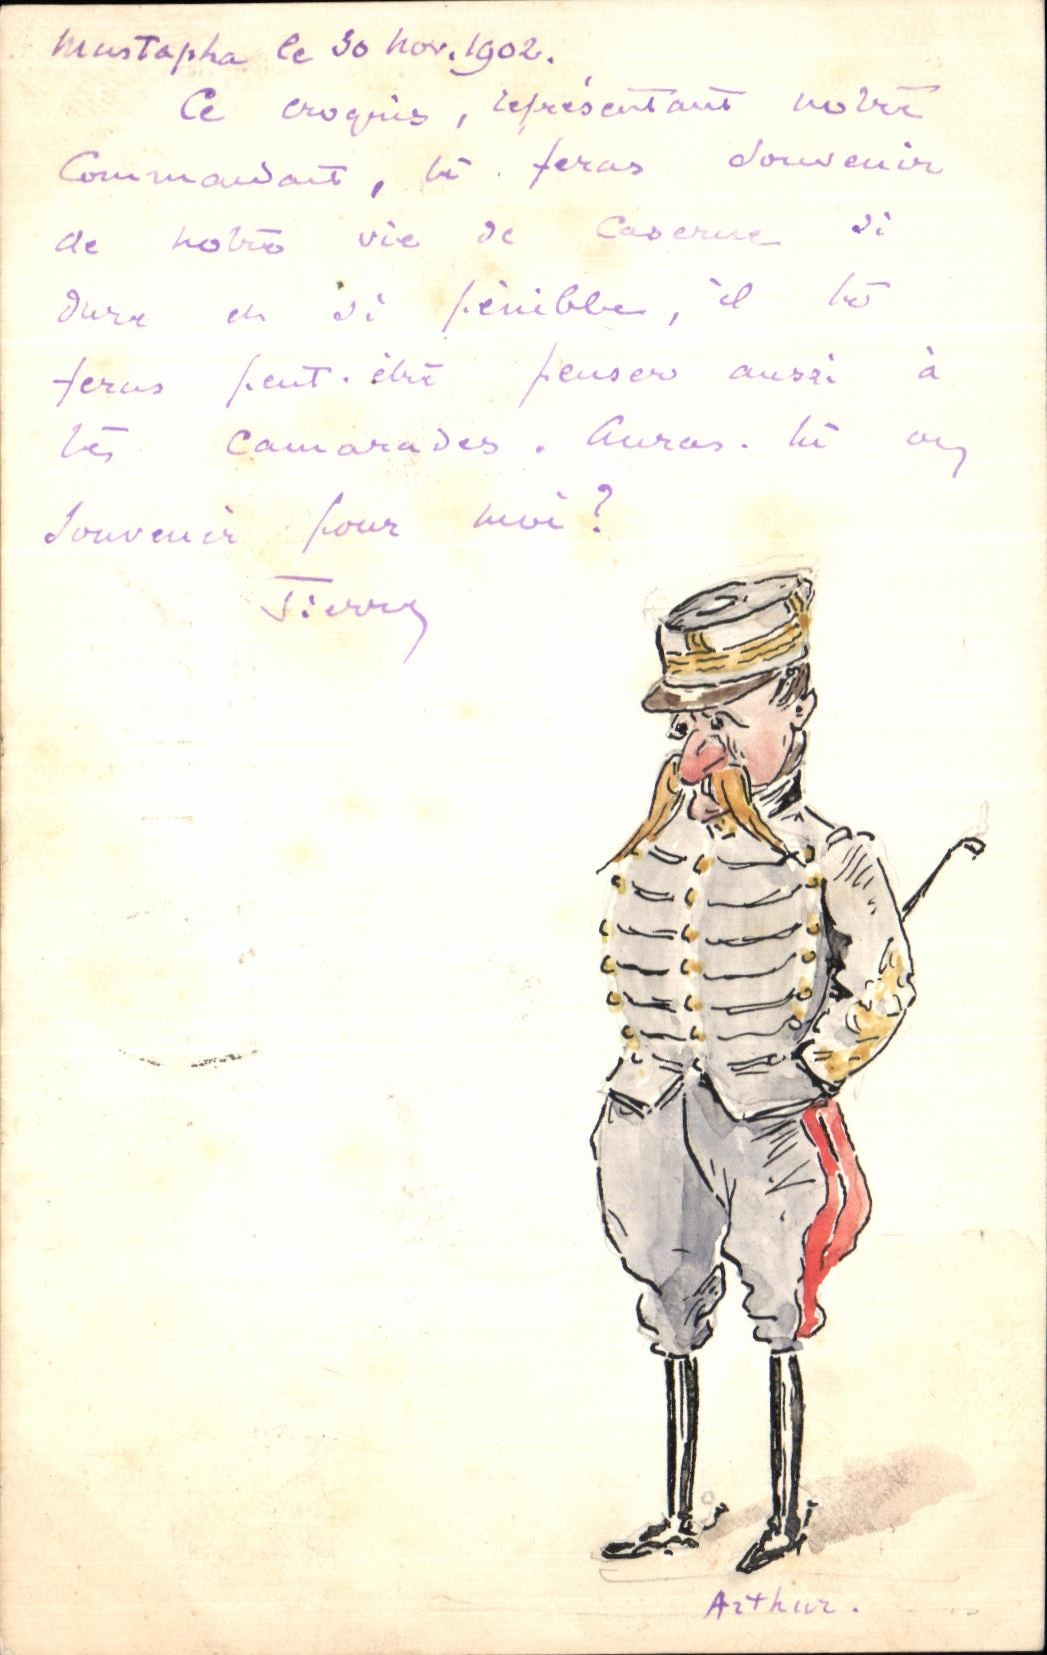 Mustapha le 30 Nov. 1902.
Ce croquis, représentant notre
Commandant, te feras souvenir
de notre vie de caserne si
dure et si pénible, il te
feras peut-être penser aussi à
tes camarades. Auras-tu un
souvenir pour moi?
Tierry
Arthur.